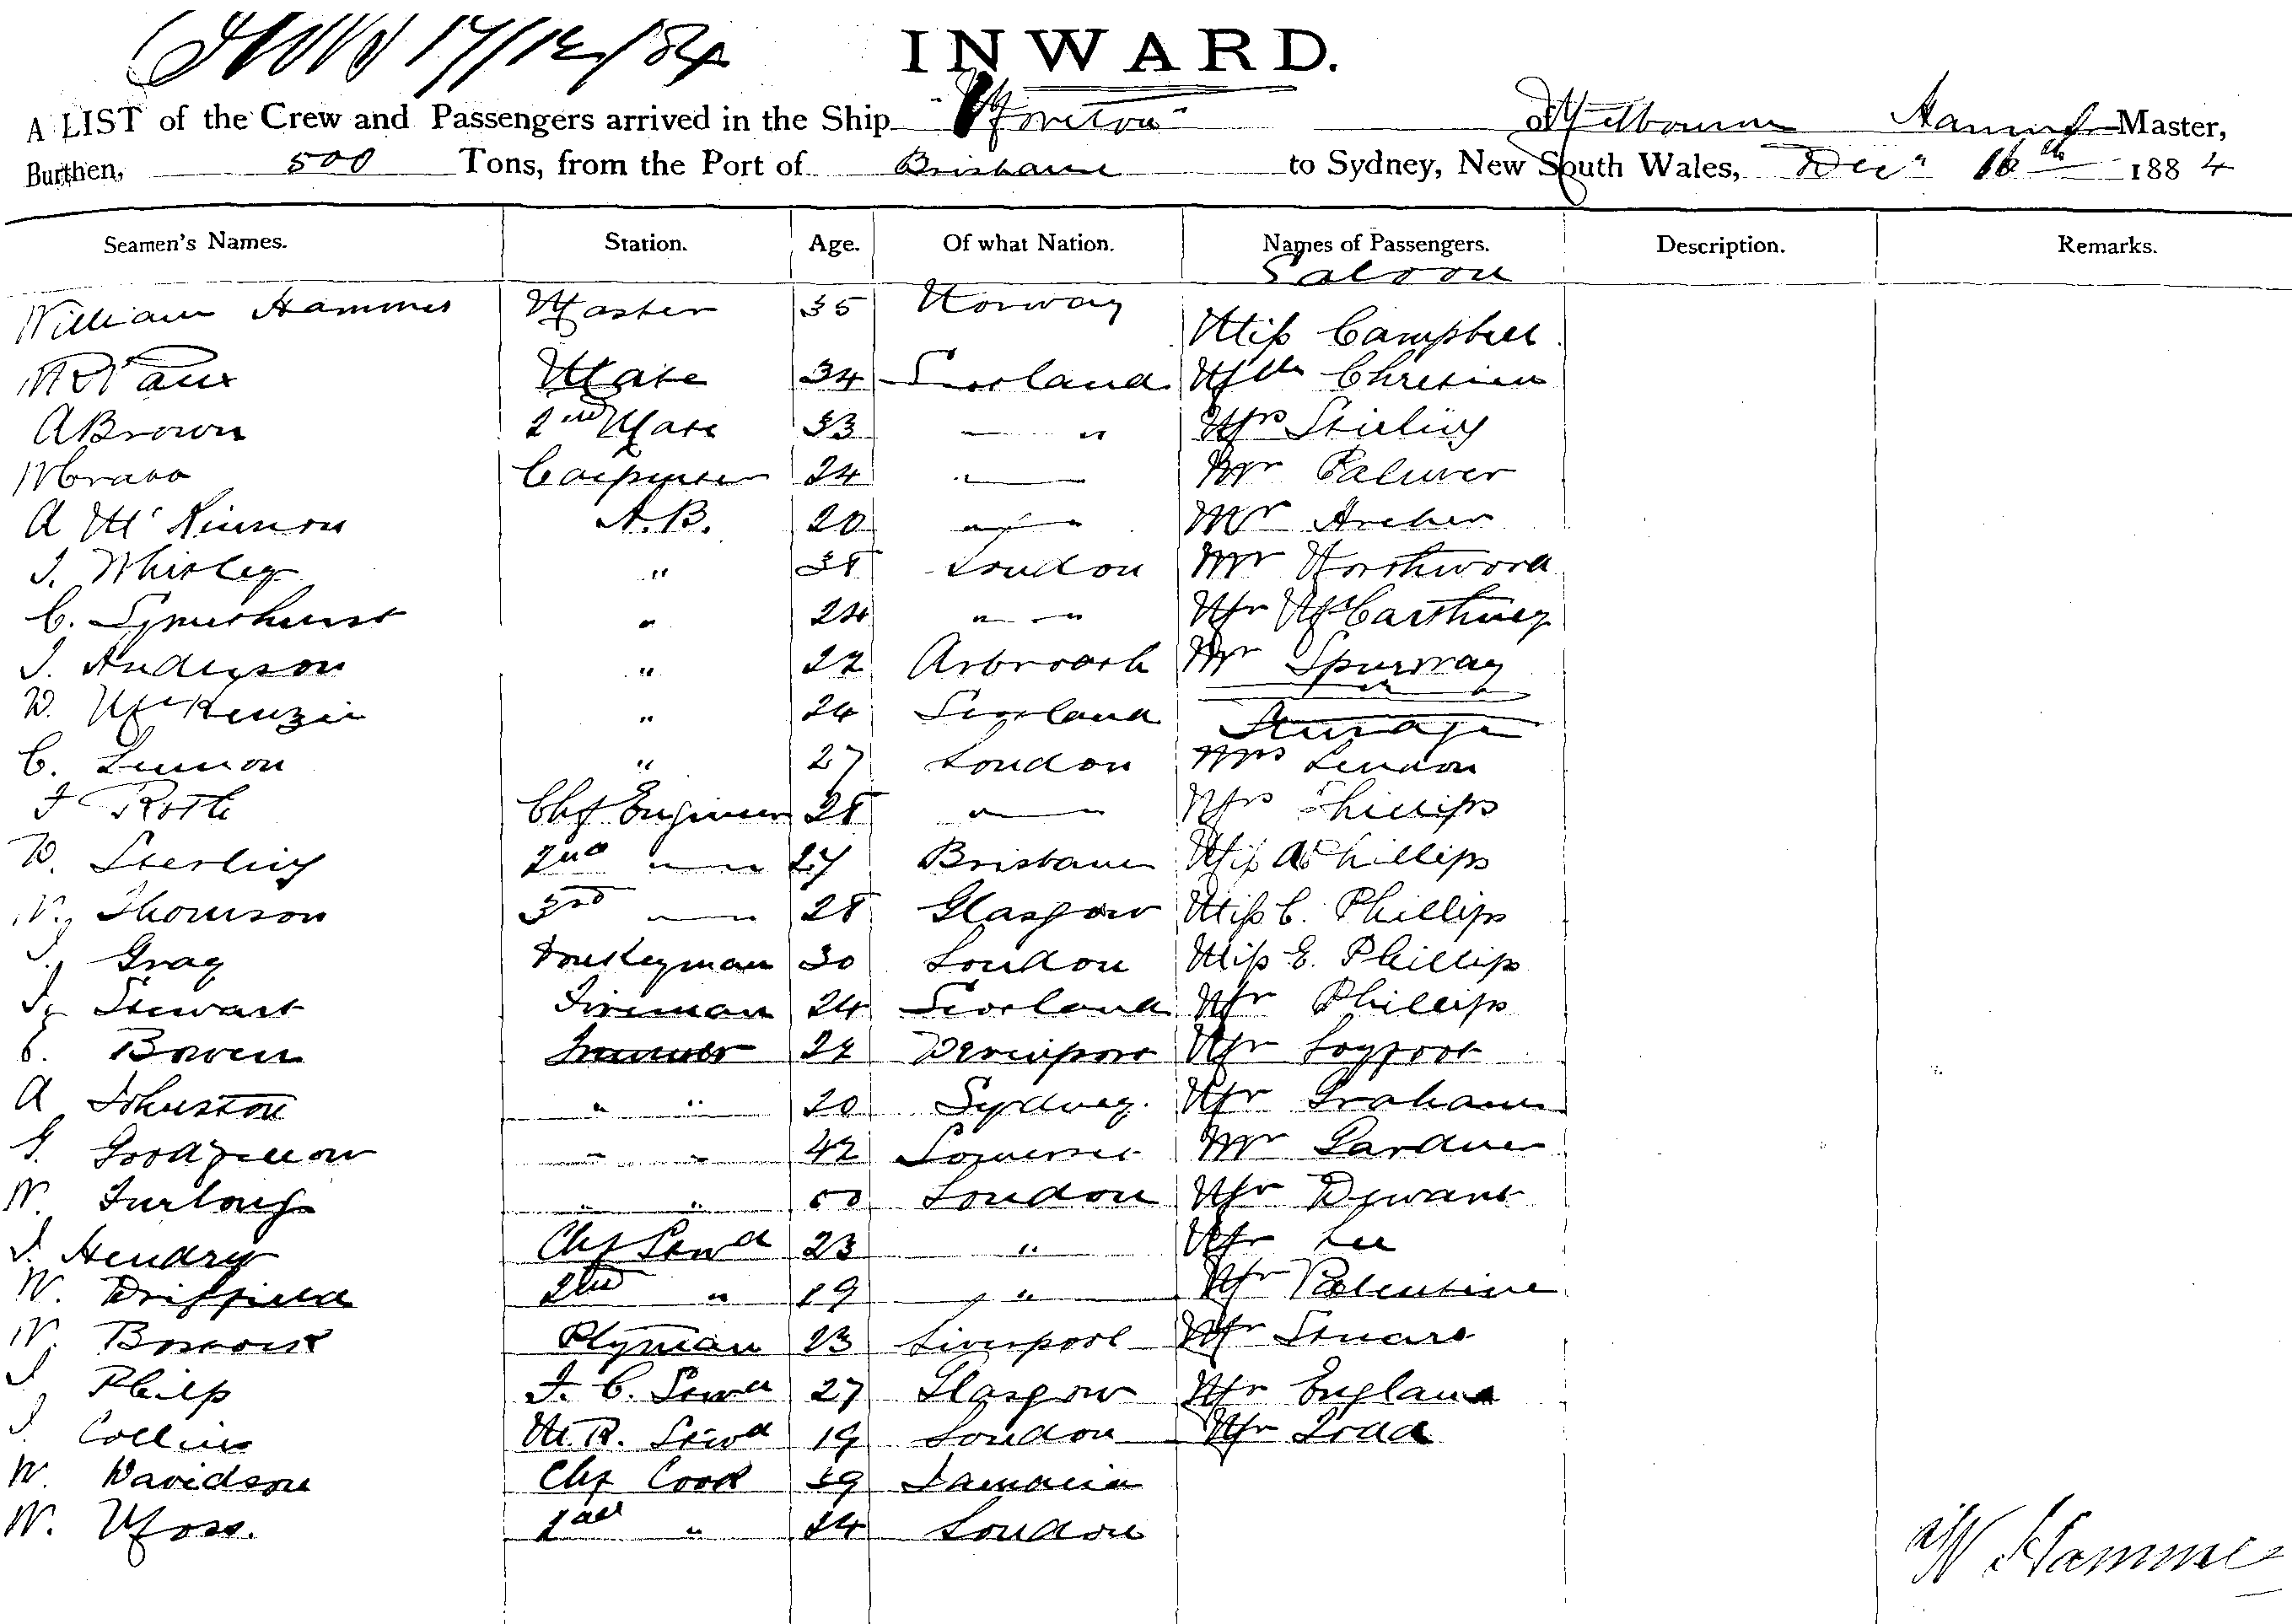 17/12/84
INWARD.
A LIST of the Crew and Passengers arrived in the Ship "Moreton" of Melbourne Hammer Master,
Burthen, 500 Tons, from the Port of Brisbane to Sydney, New South Wales, Decr 16th 1884
Seamen's Names. Station. Age. Of what Nation. Names of Passengers. Description. Remarks.
Saloon
William Hammer Master 35 Norway Miss Campbell
Mate 34 Scotland
A Brown 2nd Mate 33 " Mrs Stirling
Carpenter 24 " Mr Palmer
A McKinnon A.B. 20 " Mr Archer
J. Whisley " 38 London Mr Northwood
C. " 24 " " Mr McCarthney
J. Anderson " 22 Arbroath Mr Spurway
W. McKenzie " 24 Scotland Steerage
C. Lennon " 27 London Mrs Lennon
Roth Chf Engineer 28 " Mrs Phillips
W. Sterling 2nd " 27 Brisbane Miss A Phillips
W. Thomson 3rd " 28 Glasgow Miss C. Phillips
J. Gray Donkeyman 30 London Miss E. Phillips
J. Stewart Fireman 24 Scotland Mr Phillips
Bowen Trimmer 22 Devenport Mr
A Johnston " " 20 Sydney. Mr Graham
G. Goodfellow " " 42 Somerset Mr Gardner
W. Furlong " " 50 London Mr Dewant
J. Hendry Chf Stewd 23 " Mr Lee
W. Driffield 2nd " 19 " Mr
W. Plyman 23 Liverpool Mr Stuart
J. Philp F. C. Stewd 27 Glasgow Mr England
J. Collins M.R. Stewd 19 London Mr Todd
W. Davidson Chf Cook 39 Jamaica
W. Moss. 2nd " 24 London
W Hammer